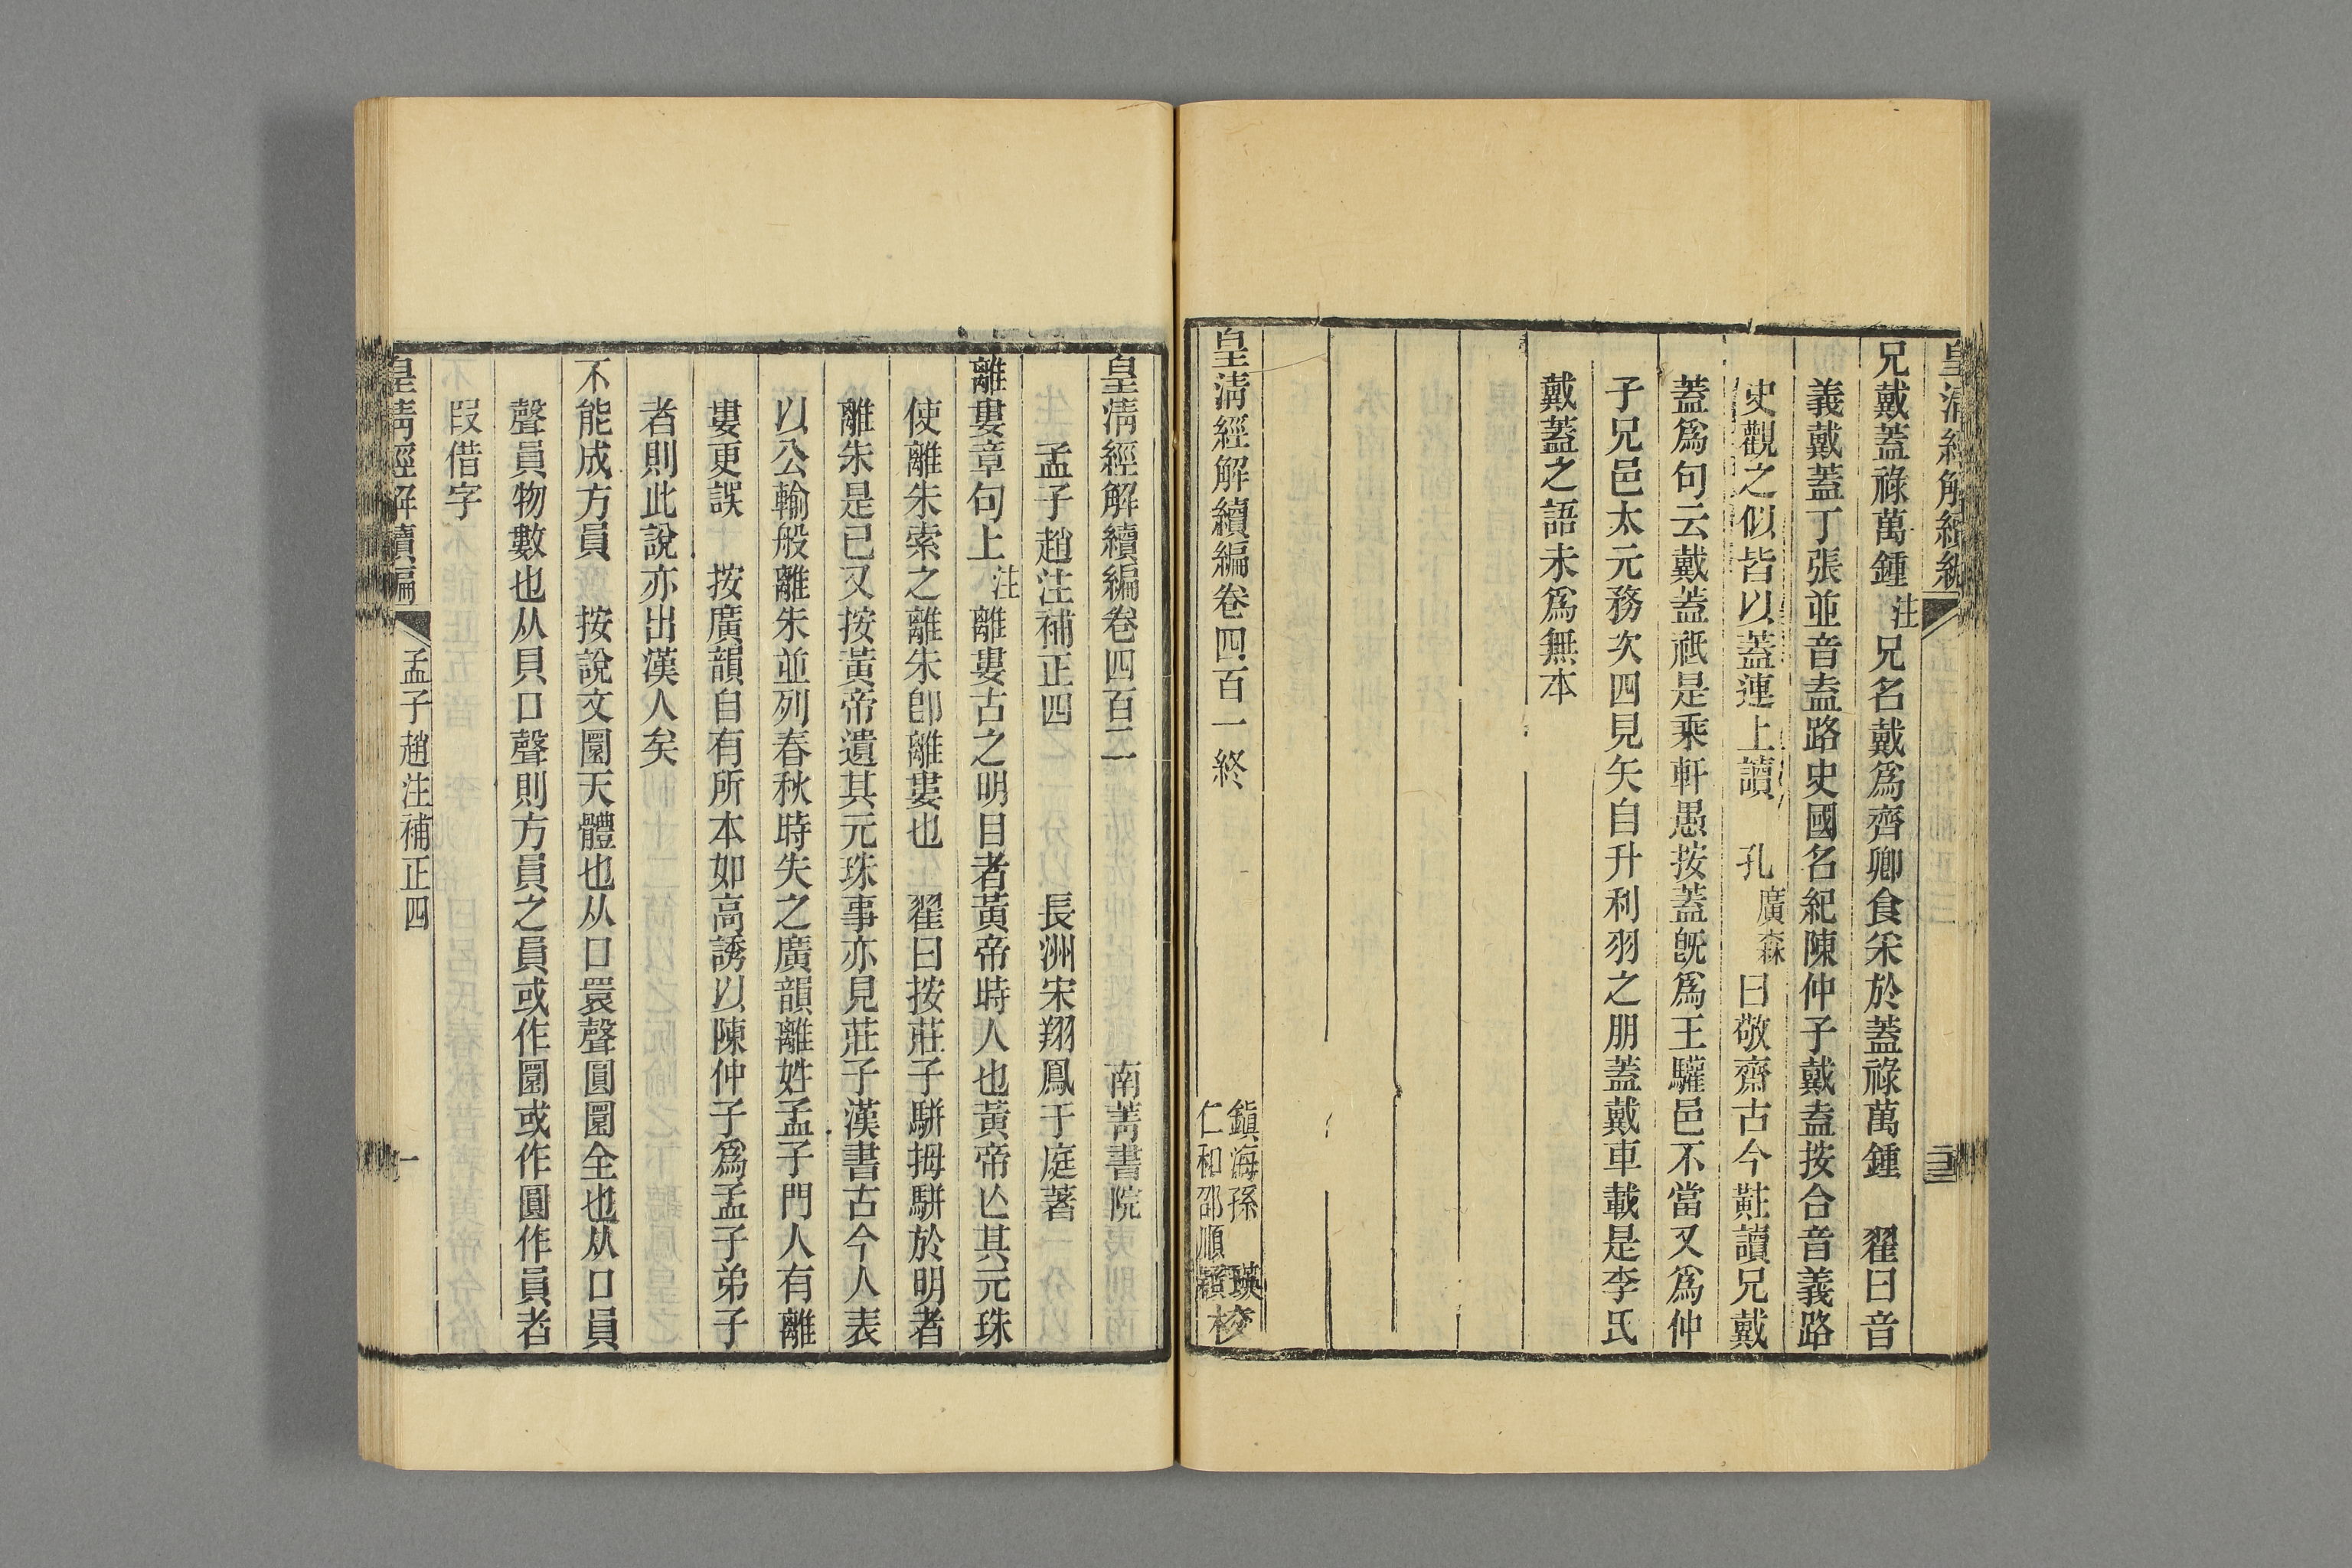 皇清經解續編
二三
兄戴蓋祿萬鍾注兄名戴爲齊卿食采於蓋祿萬鍾　翟曰音
義戴蓋丁張並音盍路史國名紀陳仲子戴盍按合音義路
史觀之似皆以蓋連上讀　孔廣森曰敬齋古今黈讀兄戴
蓋爲句云戴蓋祗是乘軒愚按蓋旣爲王驩邑不當又爲仲
子兄邑太元務次四見矢自升利羽之朋蓋戴車載是李氏
戴蓋之語未爲無本
皇清經解續編卷四百一終
鎮海孫瑛
仁和邵順穎校
皇清經解續編卷四百二　南菁書院
孟子趙注補正四　長洲宋翔鳳于庭著
離婁章句上注離婁古之明目者黃帝時人也黃帝亾其元珠
使離朱索之離朱卽離婁也　翟曰按莊子駢拇駢於明者
離朱是已又按黃帝遺其元珠事亦見莊子漢書古今人表
以公輸般離朱並列春秋時失之廣韻離姓孟子門人有離
婁更誤　按廣韻自有所本如高誘以陳仲子爲孟子弟子
者則此說亦出漢人矣
不能成方員　按說文圜天體也从囗睘聲圓圜全也从囗員
聲員物數也从貝囗聲則方員之員或作圜或作圓作員者
叚借字
皇清經解續編
孟子趙注補正四
一